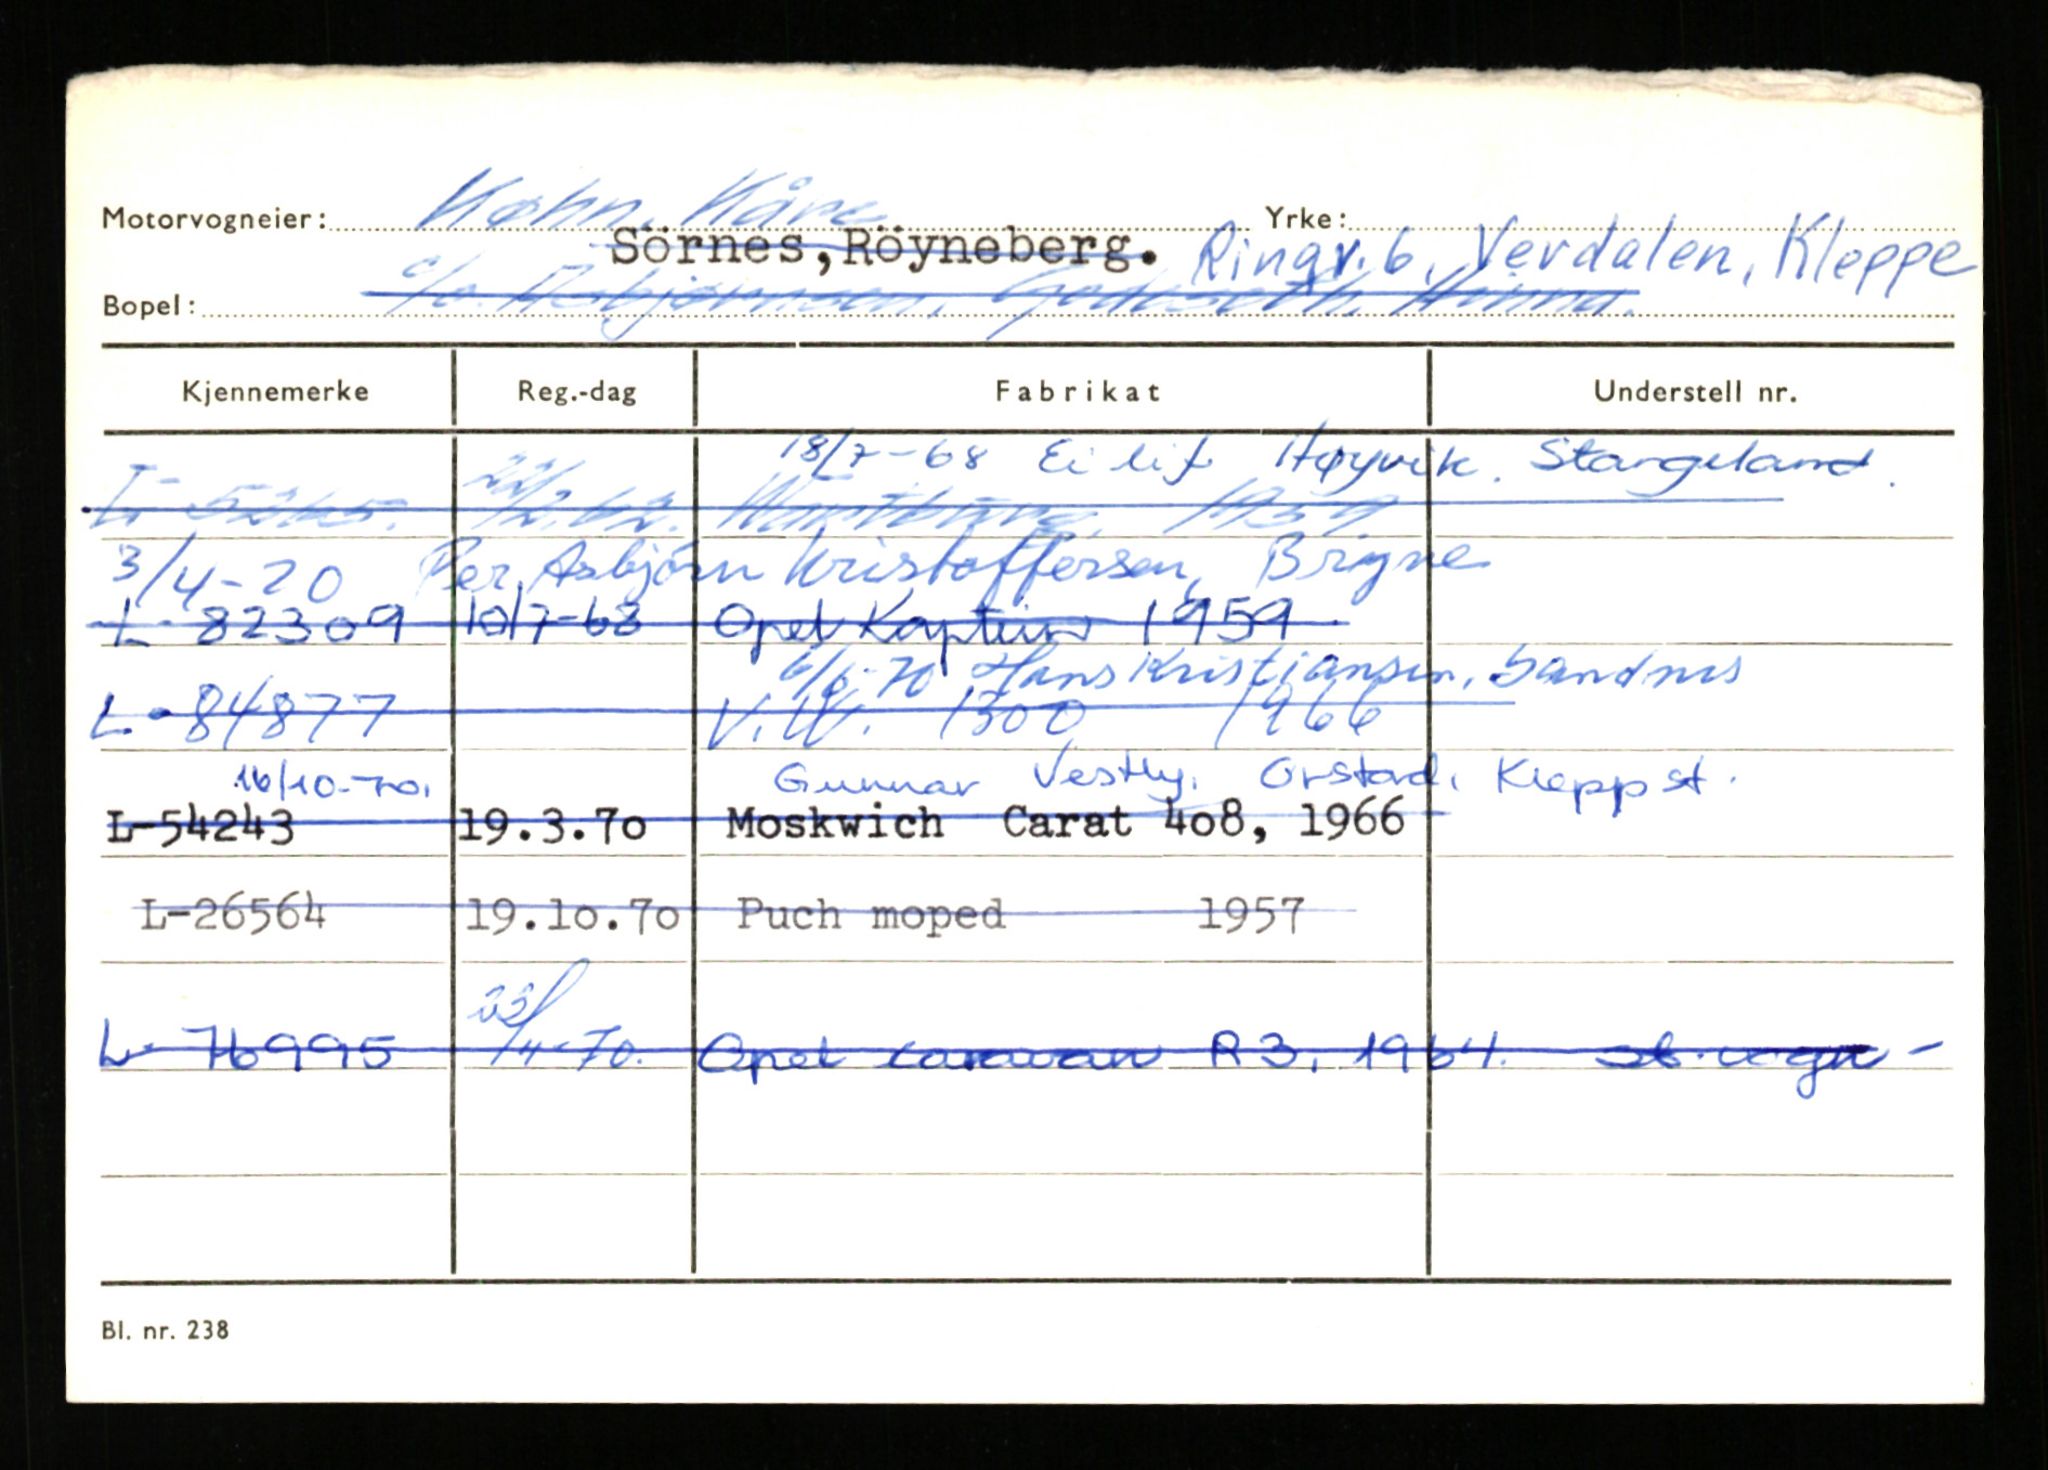 Motorvogneier: Køhn, Kåre Yrke:
Sörnes, Röyneberg. Ringv. 6, Verdalen, Kleppe
Bopel: c/o Asbjørnsen, Godeseth, Hinna.
Kjennemerke Reg.-dag Fabrikat Understell nr.
18/7-68 Eilif Høyvik. Stangeland.
L- 22/2.62. Wartburg, 1959
3/4-70 Per Asbjörn Kristoffersen, Bryne
L- 82309 10/7-68 Opel Kaptein 1959
6/6-70 Hans Kristiansen, Sandnes
L- 84877 V.W. 1300 1966
16/10-70. Gunnar Vestly, Orstad, Kleppst.
L-54243 19.3.7o Moskwich Carat 4o8, 1966
L-26564 19.1o.7o Puch moped 1957
L- 76995 23/4-70. Opel caravan R3, 1964. st.vogn -
Bl. nr. 238